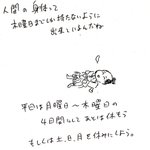 人間の身体って
木曜日までしか持たないように
出来ているんだね
平日は月曜日〜木曜日の
4日間にして あとは休もう
もしくは土、日、月を休みにしよう。